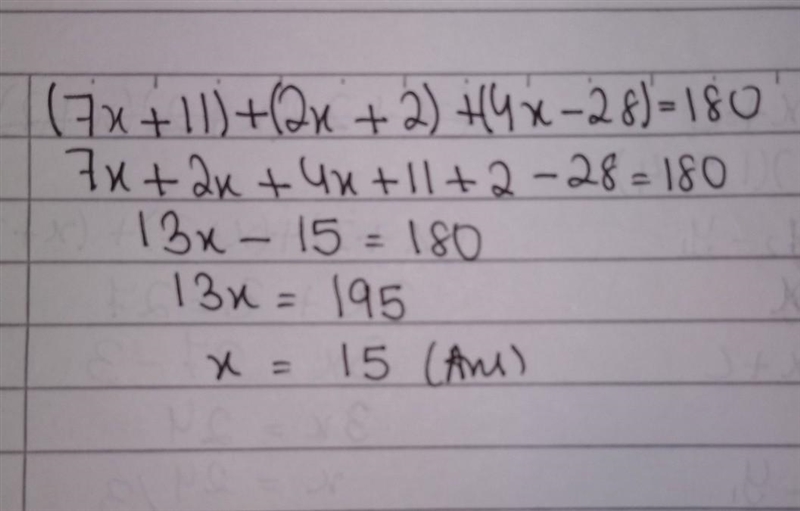 (7x+11)+(2x+2)+(4x-28)=180
7x+2x+4x+11+2-28=180
13x-15=180
13x=195
x=15 (Ans)